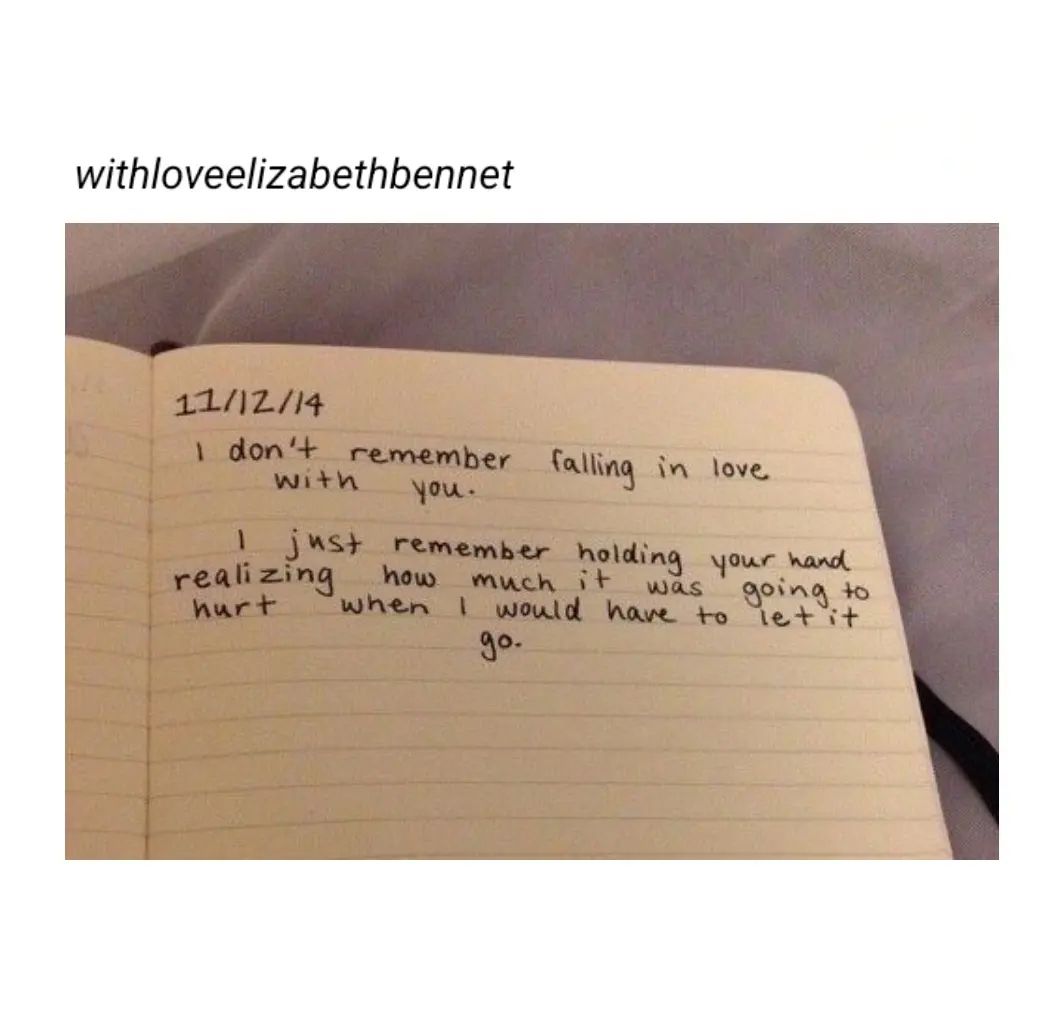 withloveelizabethbennet
11/12/14
I don't remember falling in love
with you.
I just remember holding your hand
realizing how much it was going to
hurt when I would have to let it
go.